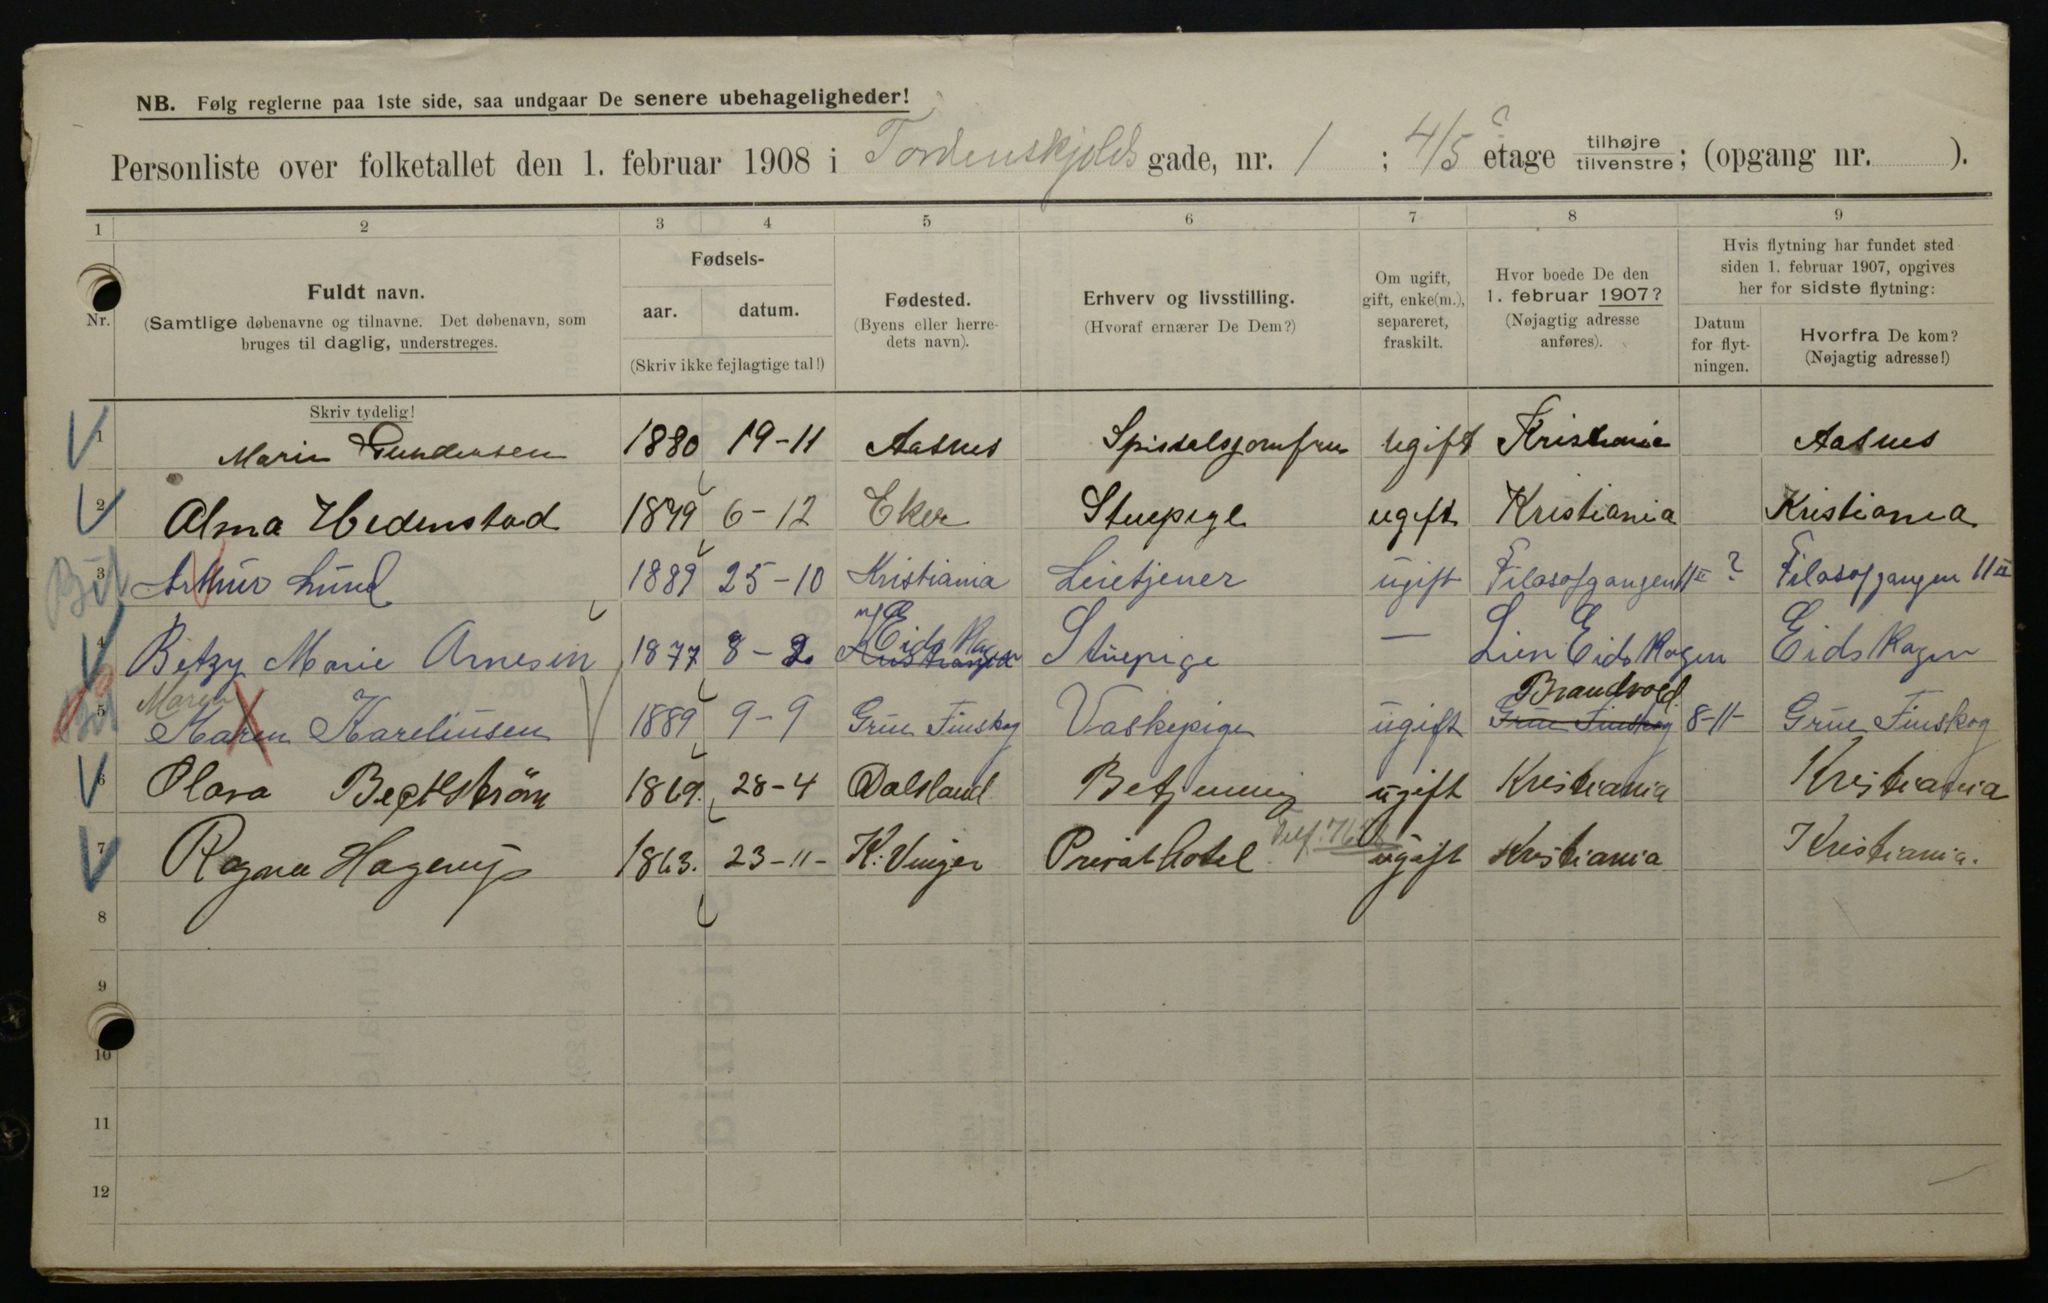 NB. Følg reglerne paa 1ste side, saa undgaar De senere ubehageligheder!
Personliste over folketallet den 1. februar 1908 i Tordenskjolds gade, nr. 1 ; 4/5 etage tilhøjre tilvenstre ; (opgang nr. ).
1 2 3 4 5 6 7 8 9
Nr.
Fuldt navn.
(Samtlige døbenavne og tilnavne. Det døbenavn, som
bruges til daglig, understreges.
Fødsels-
aar. datum.
(Skriv ikke fejlagtige tal!)
Fødested.
(Byens eller herre-
dets navn).
Erhverv og livsstilling.
(Hvoraf ernærer De Dem?)
Om ugift,
gift, enke(m.),
separeret,
fraskilt.
Hvor boede De den
1. februar 1907?
(Nøjagtig adresse
anføres).
Hvis flytning har fundet sted
siden 1. februar 1907, opgives
her for sidste flytning:
Datum
for flyt-
ningen.
Hvorfra De kom?
(Nøjagtig adresse!)
Skriv tydelig!
1 Marie Gundersen 1880 19-11 Aasnes ugift Kristiania Aasnes
2 Alma Hedenstad 1879 6-12 Eker Stuepige ugift Kristiania Kristiania
3 Arthur Lund 1889 25-10 Kristiania Leietjener ugift Filosofgangen 11 II ? Filosofgangen 11 II
4 Betzy Marie Arnesen 1877 8-2 Eidskogen Kristiania Stuepige — Lien Eidskogen Eidskogen
Maren Brandvold
5 Maren Karelinsen 1889 9-9 Grue Finskog Vaskepige ugift Grue Finskog 8-11- Grue Finskog
6 Olava 1869. 28-4 Dalsland Betjening ugift Kristiania Kristiania
7 Ragna Hagerup 1863. 23-11- K. Vinger Privat Hotel Telf. ugift Kristiania Kristiania.
8
9
10
11
12